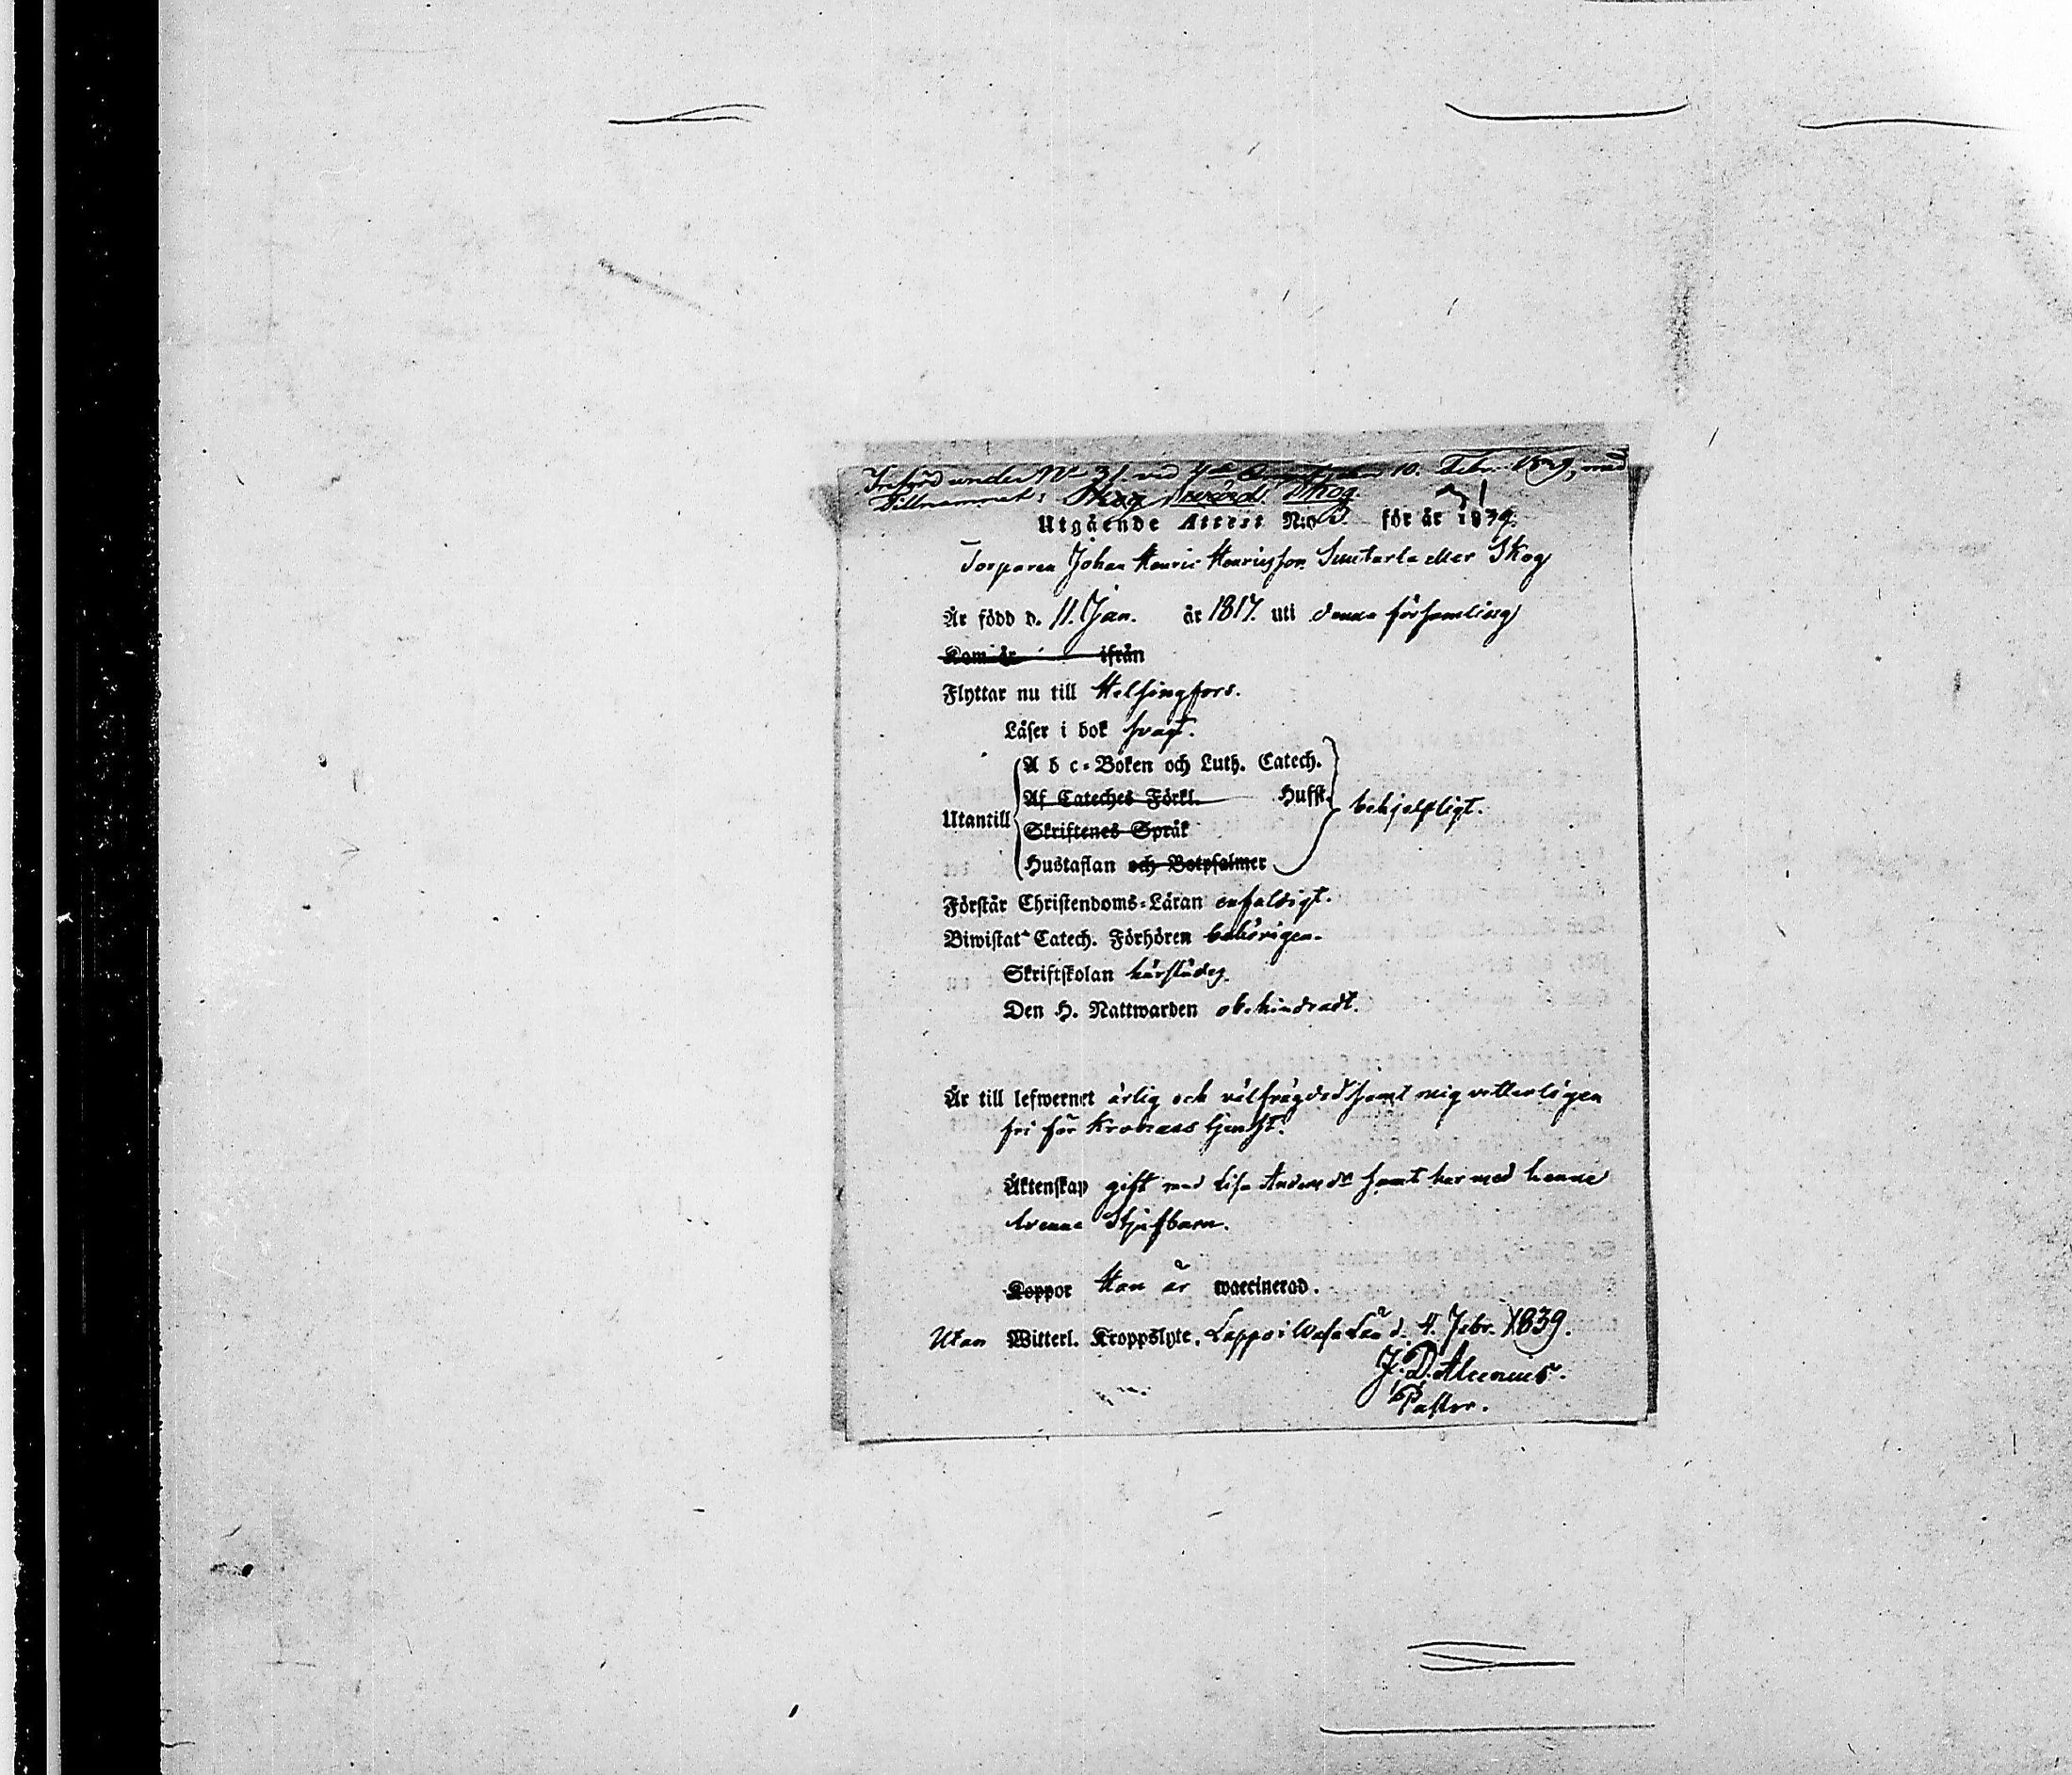 Införd under No 31. vid 4de 10. Febr. 1839, med
Tillnammet: Skog, Skog.
Utgående Attest N:o 3. för år 1839.
Torparen Johan Henric Henricsson eller Skog
Är född d. 11. Jan. år 1817. uti denna församling
Kom år ifrån
Flyttar nu till Helsingfors.
Läser i bok svagt.
A b c-Boken och Luth. Catech.
Af Cateches Förkl. Hufst.
Utantill behjelpligt.
Skriftenes Språk
Hustaflan och Botpsalmer
Förstår Christendoms-Läran enfaldigt.
Biwistat Catech. Förhören behörigen.
Skriftskolan härstädes.
Den H. Nattwarden obehindradt.
Är till lefwernet ärlig och välfrägdad samt mig vetterligen
fri för Kronans tjenst.
Äktenskap gift med Lisa Andersdr samt har med henne
trenne Stjufbarn.
Koppor Han är waccinerad.
Utan Witterl. Kroppslyte. Lappo i Wasa Län d. 4. Febr. 1839.
J. D. Alcenius.
Pastor.